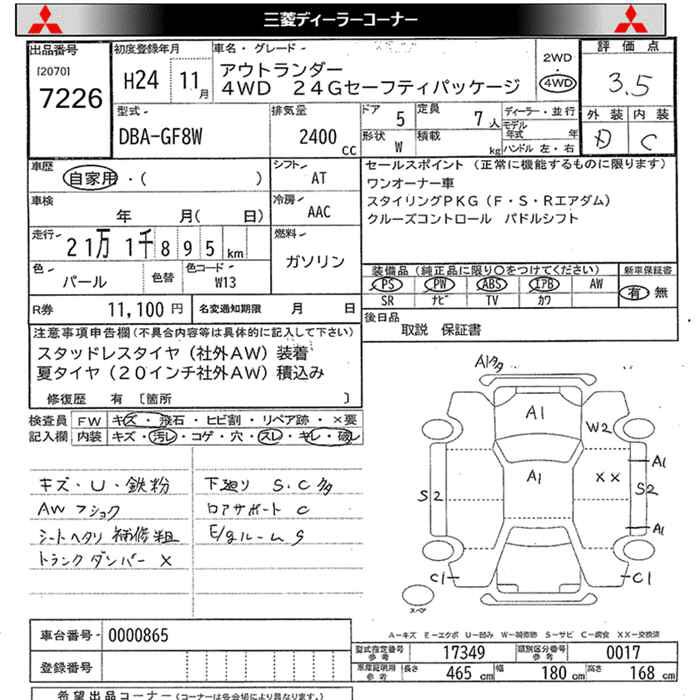 三菱ディーラーコーナー
出品番号
[2070]
7226
初度登録年月
H24 11月
車名・グレード
アウトランダー
4WD 24Gセーフティパッケージ
2WD
・
4WD
評価点
3.5
外装 内装
D C
型式
DBA-GF8W
排気量
2400 cc
ドア 5
形状 W
定員 7人
積載 kg
ディーラー・並行
モデル年式 年
ハンドル 左・右
車歴
自家用・( )
シフト
AT
車検
年 月( 日)
冷房
AAC
走行
21万1千895km
燃料
ガソリン
色
パール
色替
色コード
W13
R券 11,100円
名変通知期限 月 日
セールスポイント (正常に機能するものに限ります)
ワンオーナー車
スタイリングPKG(F・S・Rエアダム)
クルーズコントロール パドルシフト
装備品(純正品に限り○をつけてください)
新車保証書
PS PW ABS エアB AW
SR ナビ TV カワ
有 無
後日品
取説 保証書
注意事項申告欄(不具合内容等は具体的に記入して下さい)
スタッドレスタイヤ(社外AW)装着
夏タイヤ(20インチ社外AW)積込み
修復歴 有 〔箇所 〕
検査員
記入欄
FW キズ・飛石・ヒビ割・リペア跡・×要
内装 キズ・汚レ・コゲ・穴・スレ・キレ・破レ
キズ・U・鉄粉
AWフショク
シートヘタリ 補修粗
トランクダンパー X
下廻り S.C多
ロアサポート C
E/gルーム S
A1多
A1
W2
A1
A1
XX
S2
S2
A1
C1
C1
スペア
A-キズ E-エクボ U-凹み W-補修跡 S-サビ C-腐食 XX-交換済
車台番号 0000865
登録番号
型式指定番号 参考 17349
類別区分番号 参考 0017
車庫証明用 参考 長さ 465 cm 幅 180 cm 高さ 168 cm
希望出品コーナー(コーナーは各会場により異なります。)